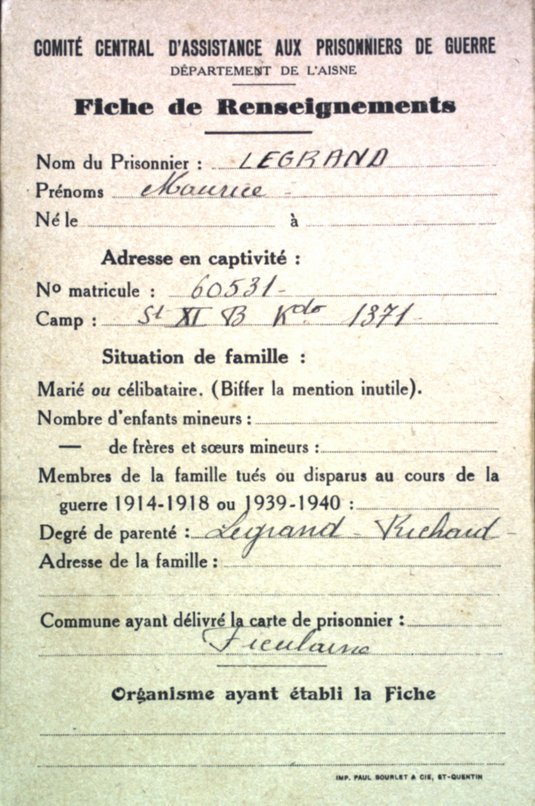 COMITÉ CENTRAL D'ASSISTANCE AUX PRISONNIERS DE GUERRE
DÉPARTEMENT DE L'AISNE
Fiche de Renseignements
Nom du Prisonnier : LEGRAND
Prénoms Maurice -
Né le à
Adresse en captivité :
No matricule : 60531-
Camp : St XI B Kdo 1371-
Situation de famille :
Marié ou célibataire. (Biffer la mention inutile).
Nombre d'enfants mineurs :
— de frères et sœurs mineurs :
Membres de la famille tués ou disparus au cours de la
guerre 1914-1918 ou 1939-1940 :
Degré de parenté : Legrand - Richard -
Adresse de la famille :
Commune ayant délivré la carte de prisonnier :
Fieulaine
Organisme ayant établi la Fiche
IMP. PAUL BOURLET & CIE, ST-QUENTIN